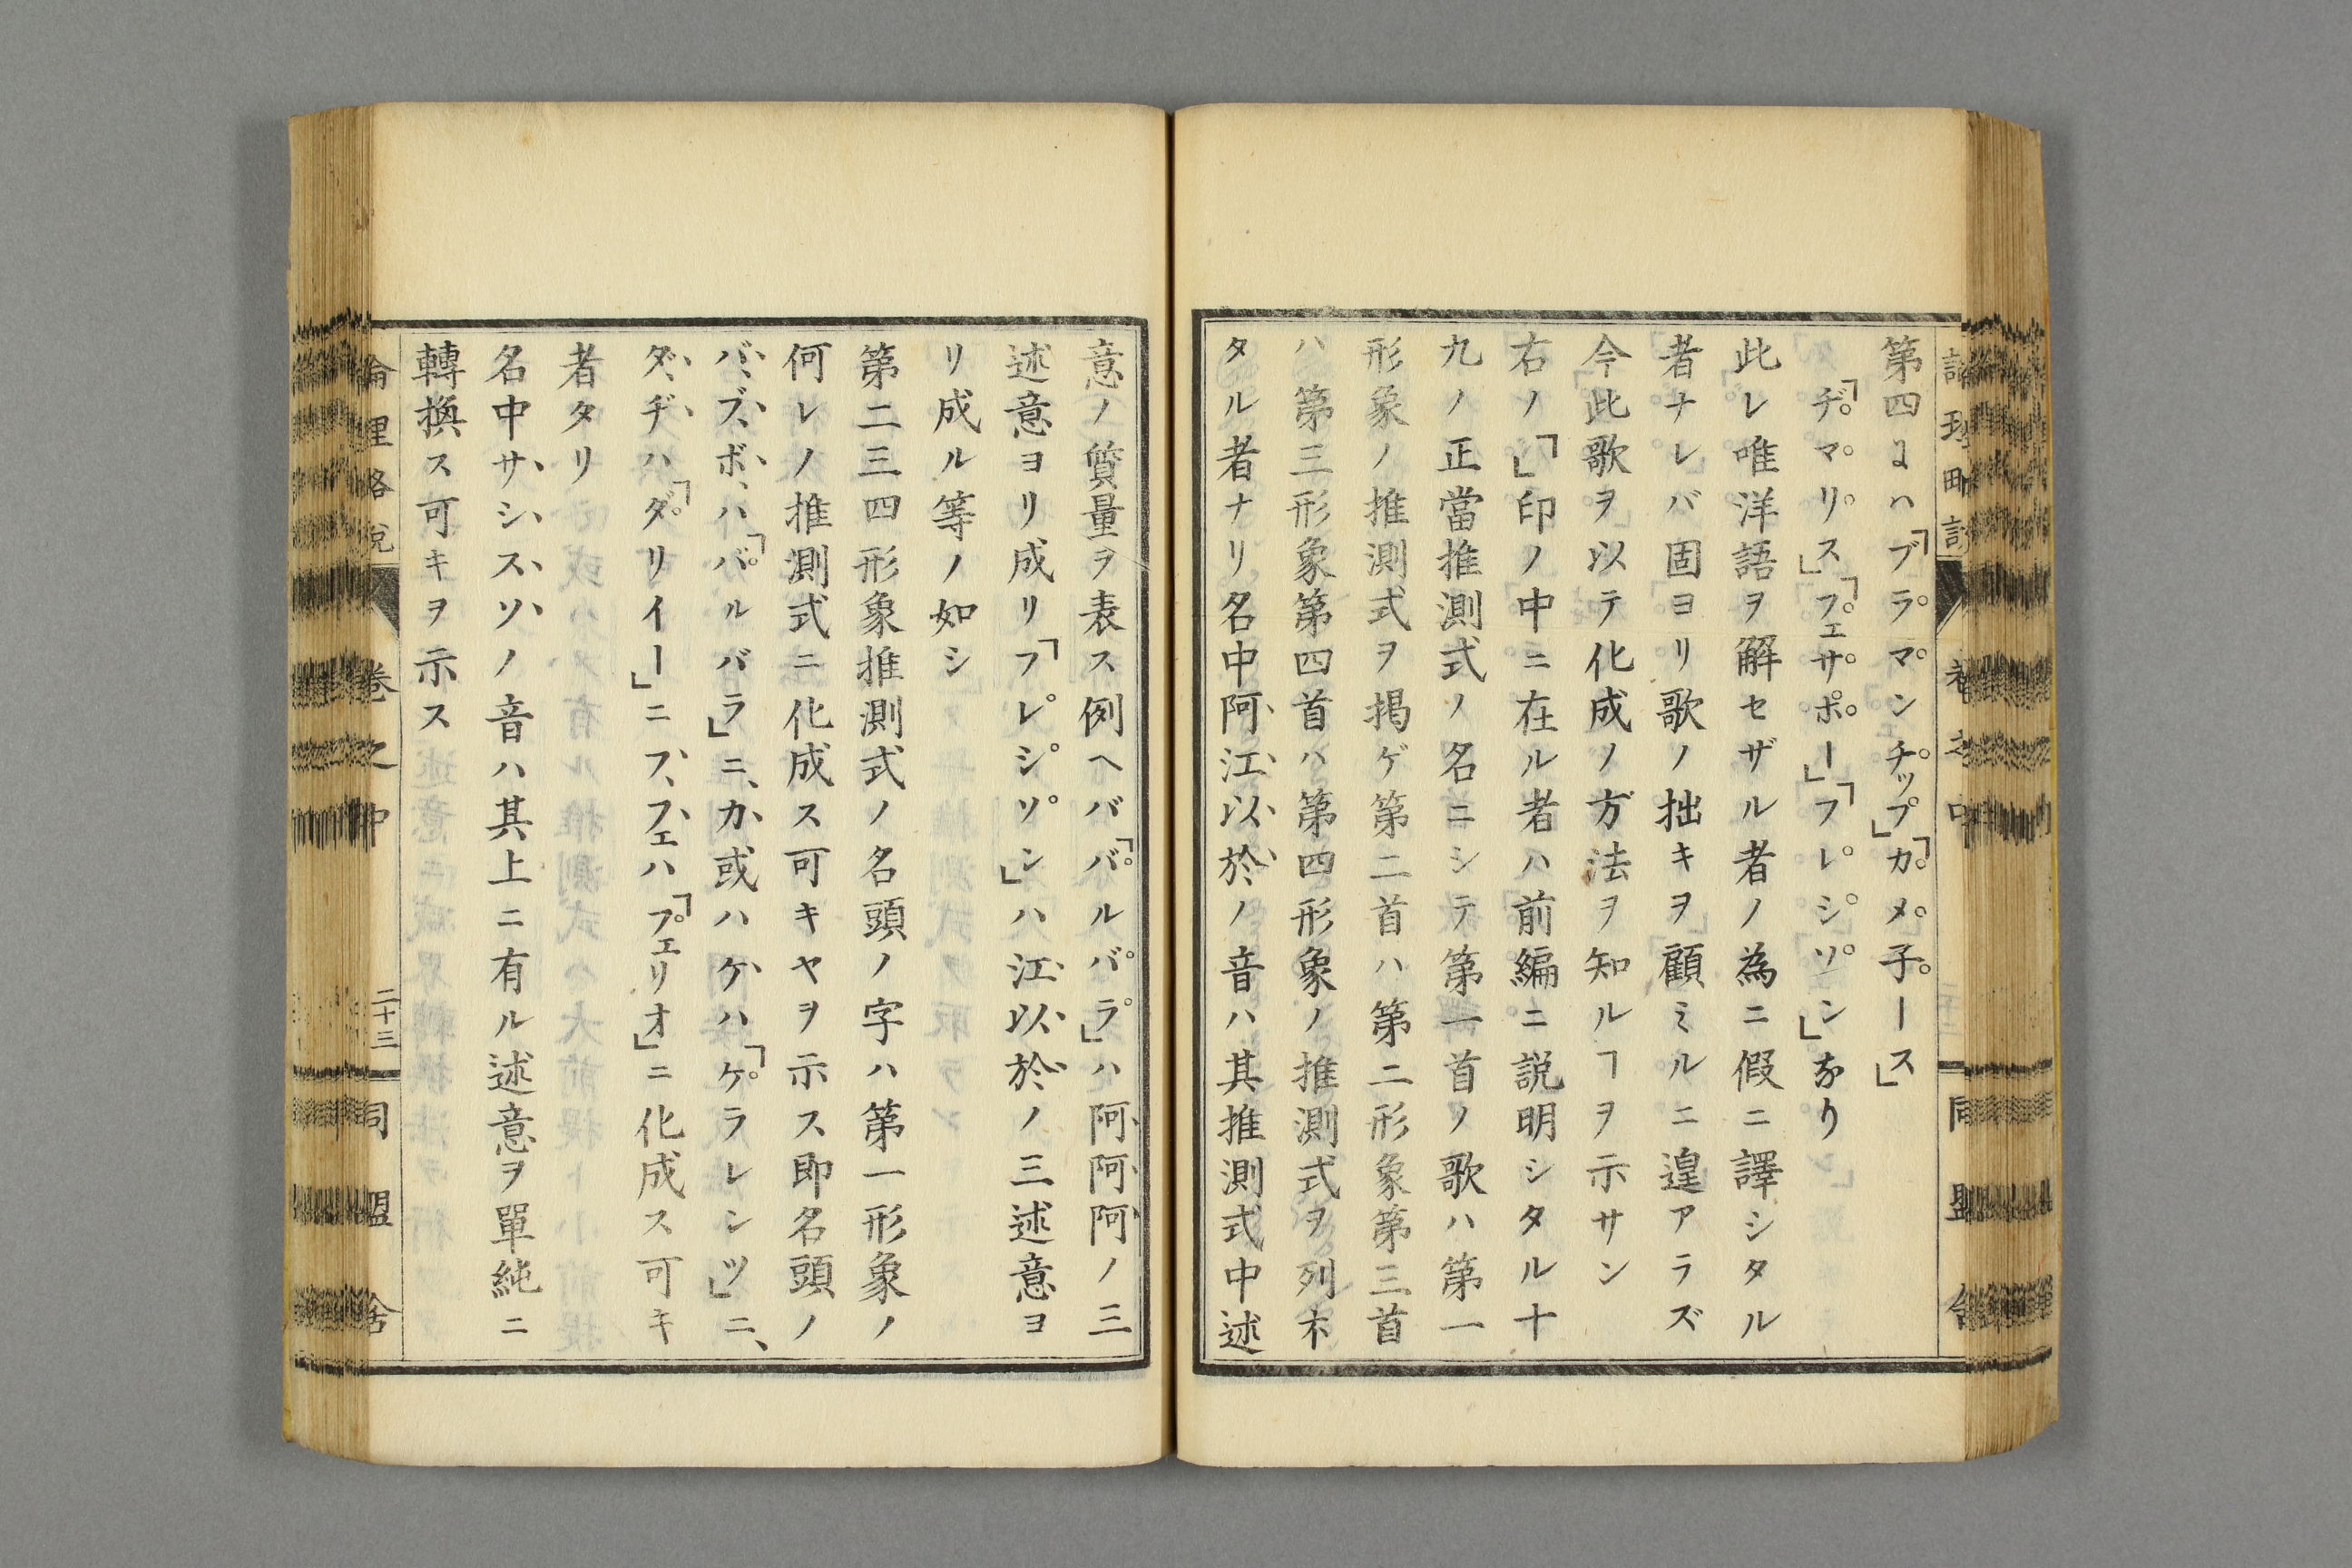 第四ヨハ「ブラマンチップ」「カメ子ース」
「ヂマリス」「フェサポー」「フレシソン」なり
此レ唯洋語ヲ解セザル者ノ為ニ假ニ譯シタル
者ナレバ固ヨリ歌ノ拙キヲ顧ミルニ遑アラズ
今此歌ヲ以テ化成ノ方法ヲ知ルヿヲ示サン
右ノ「」印ノ中ニ在ル者ハ前編ニ説明シタル十
九ノ正當推測式ノ名ニシテ第一首ノ歌ハ第一
形象ノ推測式ヲ掲ゲ第二首ハ第二形象第三首
ハ第三形象第四首ハ第四形象ノ推測式ヲ列子
タル者ナリ名中阿、江、以、於、ノ音ハ其推測式中述
意ノ質量ヲ表ス例ヘバ「バルバラ」ハ阿、阿、阿、ノ三
述意ヨリ成リ「フレシソン」ハ江、以、於、ノ三述意ヨ
リ成ル等ノ如シ
第二三四形象推測式ノ名頭ノ字ハ第一形象ノ
何レノ推測式ニ化成ス可キヤヲ示ス即名頭ノ
バ、ブ、ボ、ハ「バルバラ」ニ、カ、或ハケ、ハ「ケラレンツ」ニ、
ダ、ヂ、ハ「ダリイー」ニフ、フェ、ハ「フェリオ」ニ化成ス可キ
者タリ
名中サ、シ、ス、ソ、ノ音ハ其上ニ有ル述意ヲ單純ニ
轉換ス可キヲ示ス
論理略説 卷之中 二十三 同盟舎